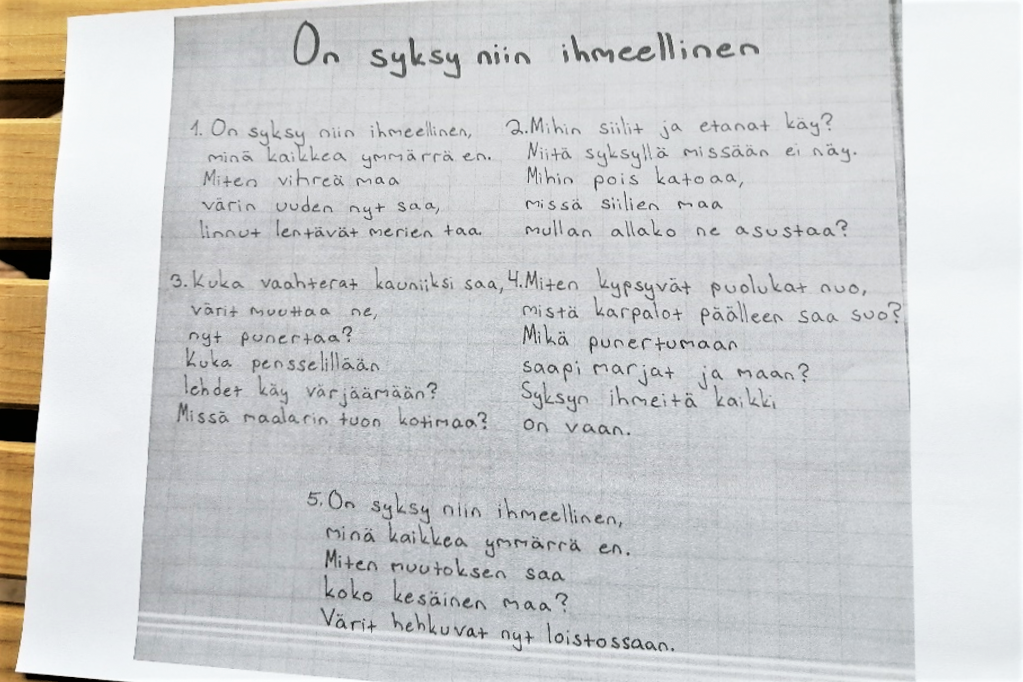 On syksy niin ihmeellinen
1. On syksy niin ihmeellinen,
minä kaikkea ymmärrä en.
Miten vihreä maa
värin uuden nyt saa,
linnut lentävät merien taa.
2. Mihin siilit ja etanat käy?
Niitä syksyllä missään ei näy.
Mihin pois katoaa,
missä siilien maa
mullan allako ne asustaa?
3. Kuka vaahterat kauniiksi saa,
värit muuttaa ne,
nyt punertaa?
Kuka pensselillään
lehdet käy värjäämään?
Missä maalarin tuon kotimaa?
4. Miten kypsyvät puolukat nuo,
mistä karpalot päälleen saa suo?
Mikä punertumaan
saapi marjat ja maan?
Syksyn ihmeitä kaikki
on vaan.
5. On syksy niin ihmeellinen,
minä kaikkea ymmärrä en.
Miten muutoksen saa
koko kesäinen maa?
Värit hehkuvat nyt loistossaan.